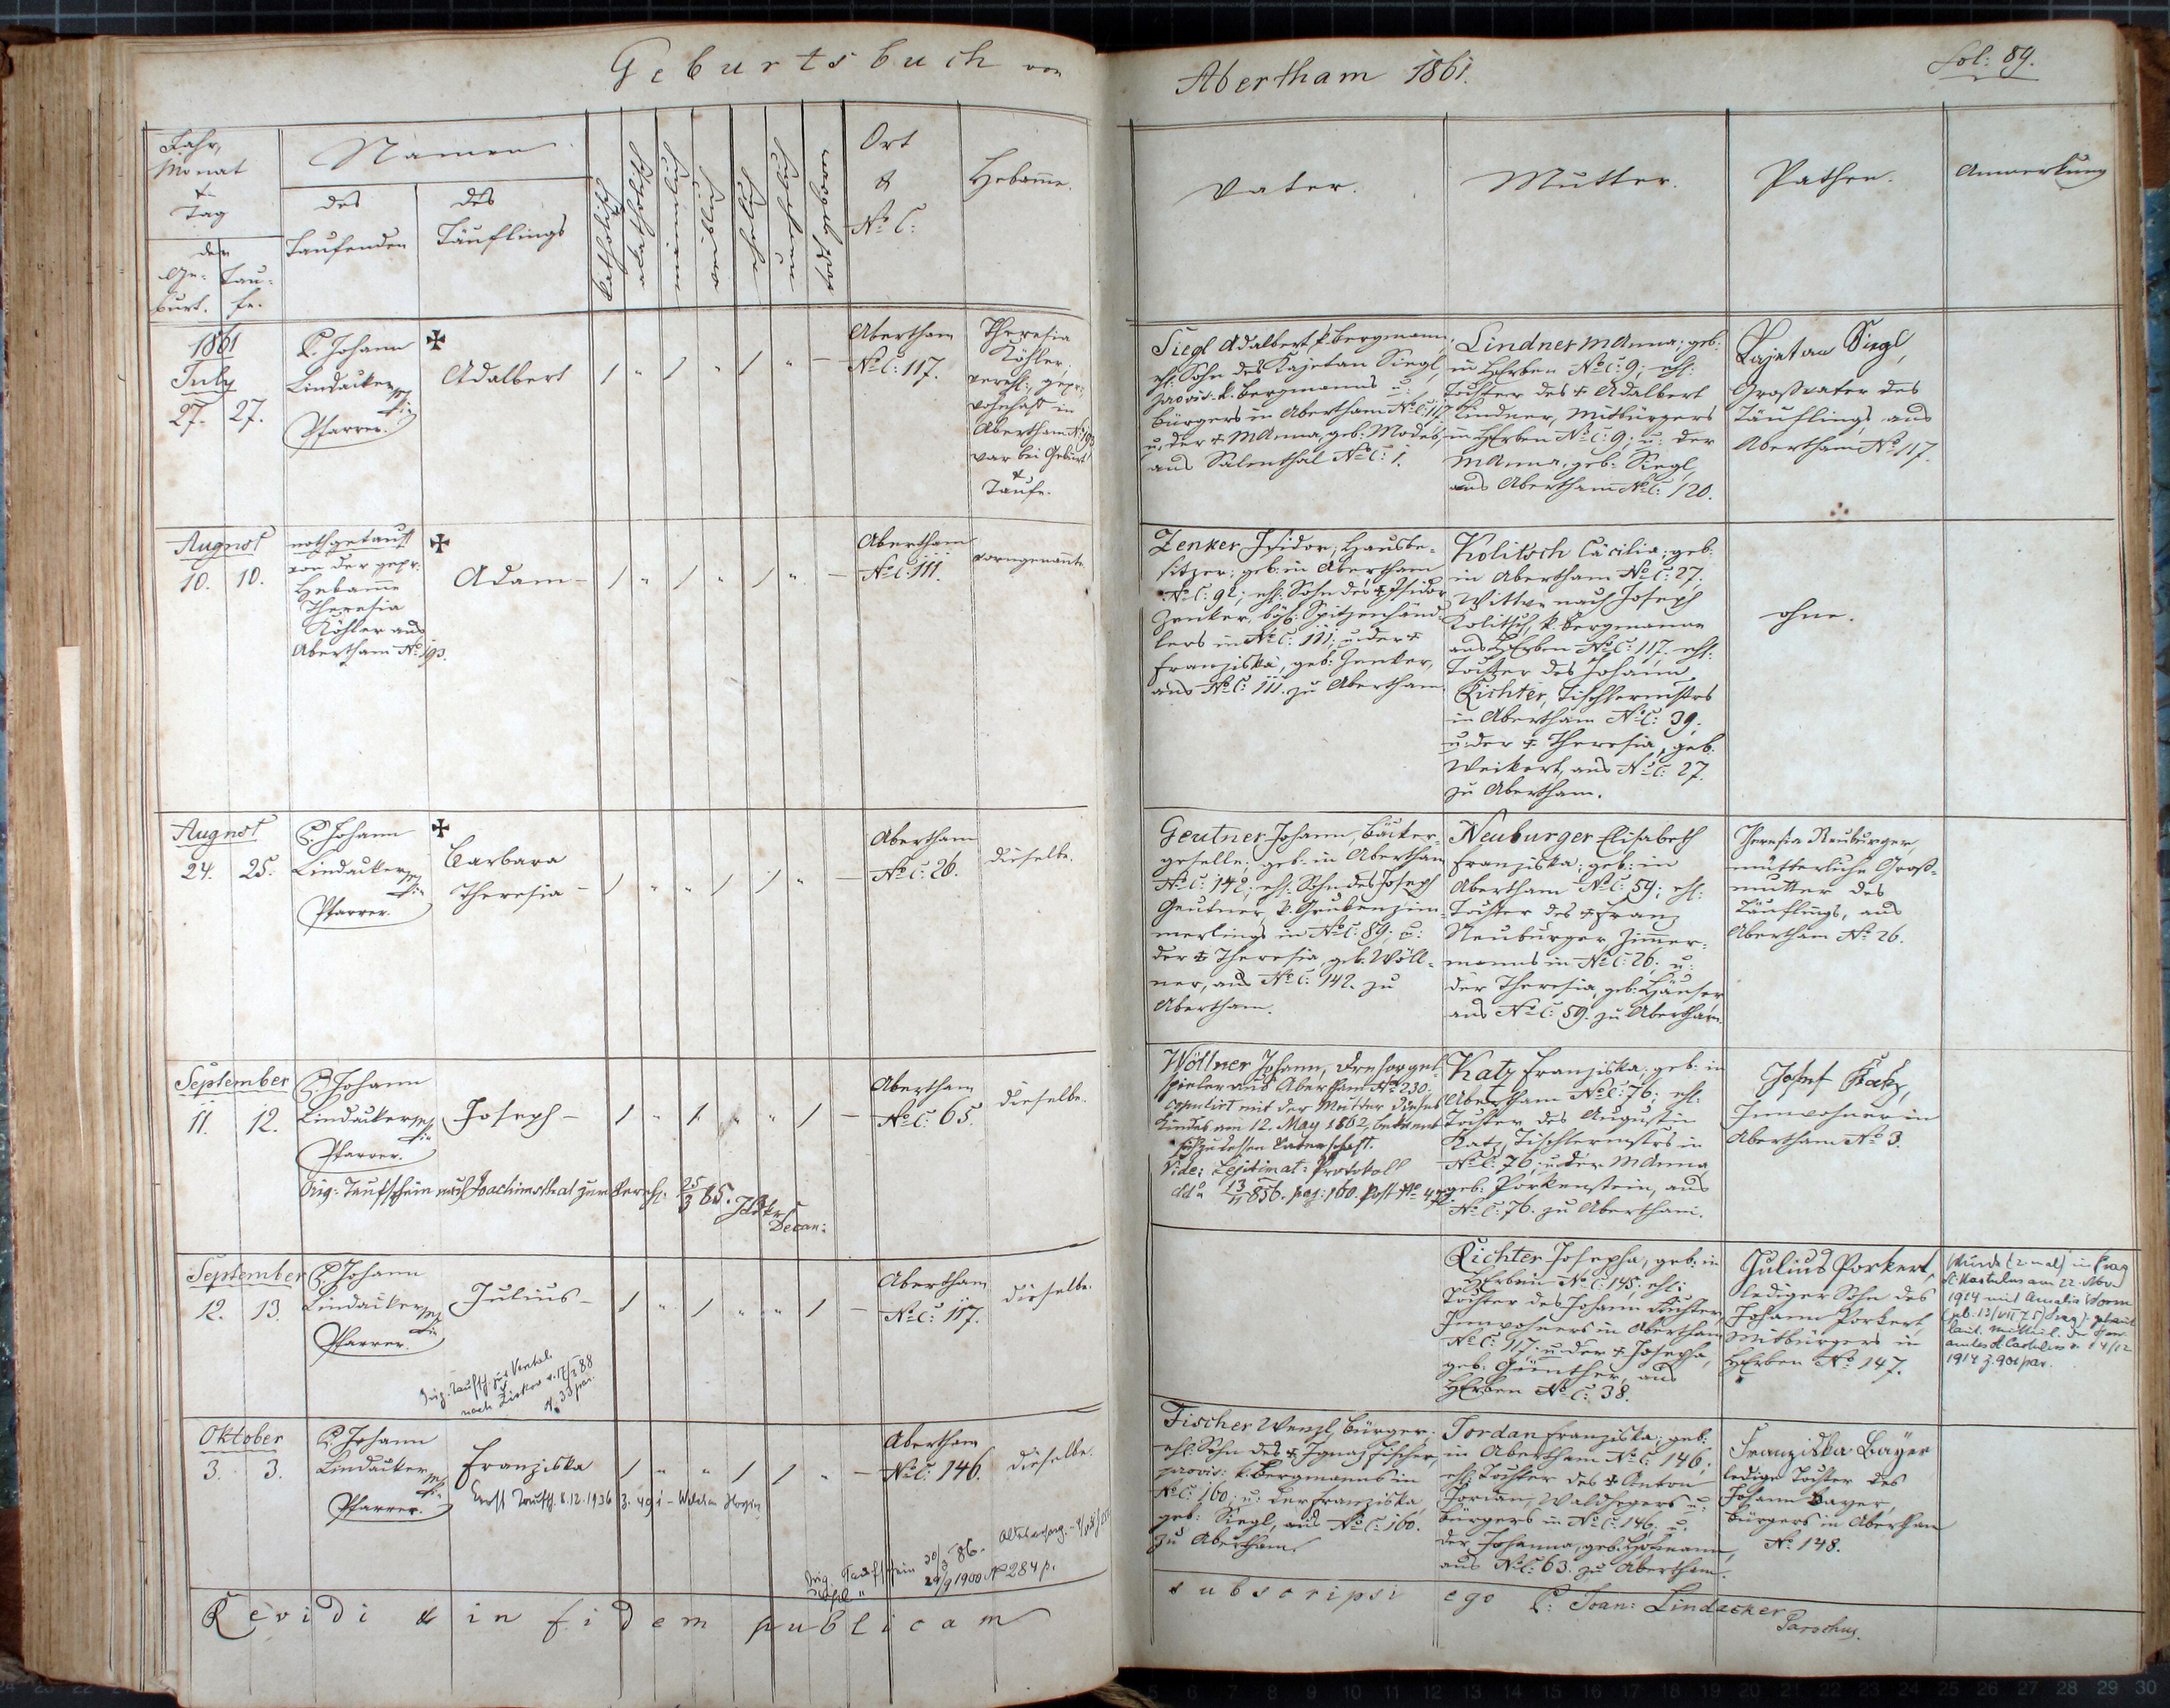 Geburtsbuch von
Abertham 1861.
fol: 89.
Jahr,
Monat
&
Tag
der
Ge-
burt.
Tau-
fe.
Namen
des
Taufenden
des
Täuflings
katholisch
Ort
&
No C:
Hebame.
Vater.
Mutter.
Pathen.
Anmerkung
1861
July
27. 27.
P. Johann
Lindacker
Pfarrer.
Adalbert
Abertham
No C: 117.
Theresia
Köhler,
gepr:
wohnhaft in
Abertham No 193
war bei Geburt
&
Taufe.
Siegl Adalbert, k. Bergmann,
ehl. Sohn des Kajetan Siegl,
provis. k. Bergmanns u:
Bürgers in Abertham No C: 117
u. der † MAnna, geb. Modes,
aus Salenthal No C: 1.
Lindner MAnna; geb:
in HErben No C: 9; ehl:
Tochter des † Adalbert
Lindner, Mitbürgers
in HErben No C: 9; u: der
MAnna, geb: Siegl,
aus Abertham No C: 120.
Kajetan Siegl,
Großvater des
Täuflings aus
Abertham No 117.
August
10. 10.
nothgetauft
von der gepr:
Hebame
Theresia
Köhler aus
Abertham No 193.
Adam -
Abertham
No C: 111.
vorngenannte
Zenker Isidor; Hausbe-
sitzer; geb. in Abertham
No C: 92; ehl: Sohn des † Isidor
Zenker, Spitzenhänd-
lers in No C: 111; u: der †
Franziska, geb: Zenker,
aus No C: 111. zu Abertham
Kolitsch Cäcilia; geb:
in Abertham No C: 27,
Wittwe nach Joseph
Kolitsch, k. Bergmanne
aus HErben No C: 117. ehl:
Tochter des Johann
Richter, Tischlermstrs
in Abertham No C: 39,
u: der † Theresia, geb.
Weikert, aus No C: 27
zu Abertham.
ohne.
August
24. 25.
P. Johann
Lindacker
Pfarrer.
Barbara
Theresia -
Abertham
No C: 26.
dieselbe.
Geutner Johann, Bäcker-
geselle; geb. in Abertham
No C: 142; ehl. Sohn des Joseph
Geutner, k. Grubenzim-
merlings in No C: 89; u:
der † Theresia, geb. Wöll-
ner, aus No C: 142. zu
Abertham.
Neuburger Elisabeth
Franziska; geb: in
Abertham No C: 59; ehl:
Tochter des † Franz
Neuburger, Zimmer-
manns in No C: 26. u:
der Theresia, geb: Häuser,
aus No C: 59. zu Abertham.
Theresia Neuburger,
mütterliche Groß-
mutter des
Täuflings, aus
Abertham No 26.
September
11. 12.
P. Johann
Lindacker
Pfarrer.
Joseph -
Abertham
No C: 65.
dieselbe.
Orig: Taufschein nach Joachimsthal zum Verehl: 25/3 85.
Decan:
Wöllner Johann, Drehorgel-
spieler aus Abertham No 230.
copulirt mit der Mutter dieses
Kindes am 12. May 1862, bekennt
sich zu dessen Vaterschaft.
Vide: Legitimat: Protokoll
pag: 160. Post No
Katz Franziska; geb: in
Abertham No C: 76; ehl.
Tochter des Augustin
Katz, Tischlermstrs in
No C: 76; u: der MAnna
geb: Porkenstein, aus
No C: 76. zu Abertham.
Josef Katz,
Innwohner in
Abertham No 3.
September
12. 13.
P. Johann
Lindacker
Pfarrer.
Julius -
Abertham
No C: 117.
dieselbe.
Orig. Taufsch. zur Verehel.
nach Žiskov v. 17/5 88
N. 33 par.
Richter Josepha, geb: in
HErben No C: 145; ehl:
Tochter des Johann Richter,
Innwohners in Abertham
No C: 117. u: der † Josepha,
geb. Günther, aus
HErben No C: 38.
Julius Porkert,
lediger Sohn des
Johann Porkert,
Mitbürgers in
HErben No 147.
Wurde (2. mal) in Prag
St. Kastulus am 22. Nov.
1914 mit Amalia
(geb. 13/VII 75 Prag) getraut
laut Mitteil. des Pfarr-
amtes St. Castulus v. 14/12
1914 z. 901 par.
Oktober
3. 3.
P. Johann
Lindacker
Pfarrer.
Franziska
Taufsch. 8.12.1936
Abertham
No C: 146.
dieselbe.
Orig. Taufschein 30/3 86.
29/9 1900 No 284 p.
Fischer Wenzl, Bürger;
ehl. Sohn des † Ignaz Fischer,
provis: k. Bergmanns in
No C: 160; u: der Franziska,
geb: Siegl, aus No C: 160.
zu Abertham.
Jordan Franziska; geb:
in Abertham No C: 146;
ehl. Tochter des † Anton
Jordan, Waldhegers u:
Bürgers in No C: 146. u.
der Johanna, geb. Hofmann,
aus No C: 63. zu Abertham.
Franziska Bayer
ledige Tochter des
Johann Bayer,
Bürgers in Abertham
No 148.
Revidi & in fidem publicam
subscripsi ego P: Joan: Lindacker
Parochus.